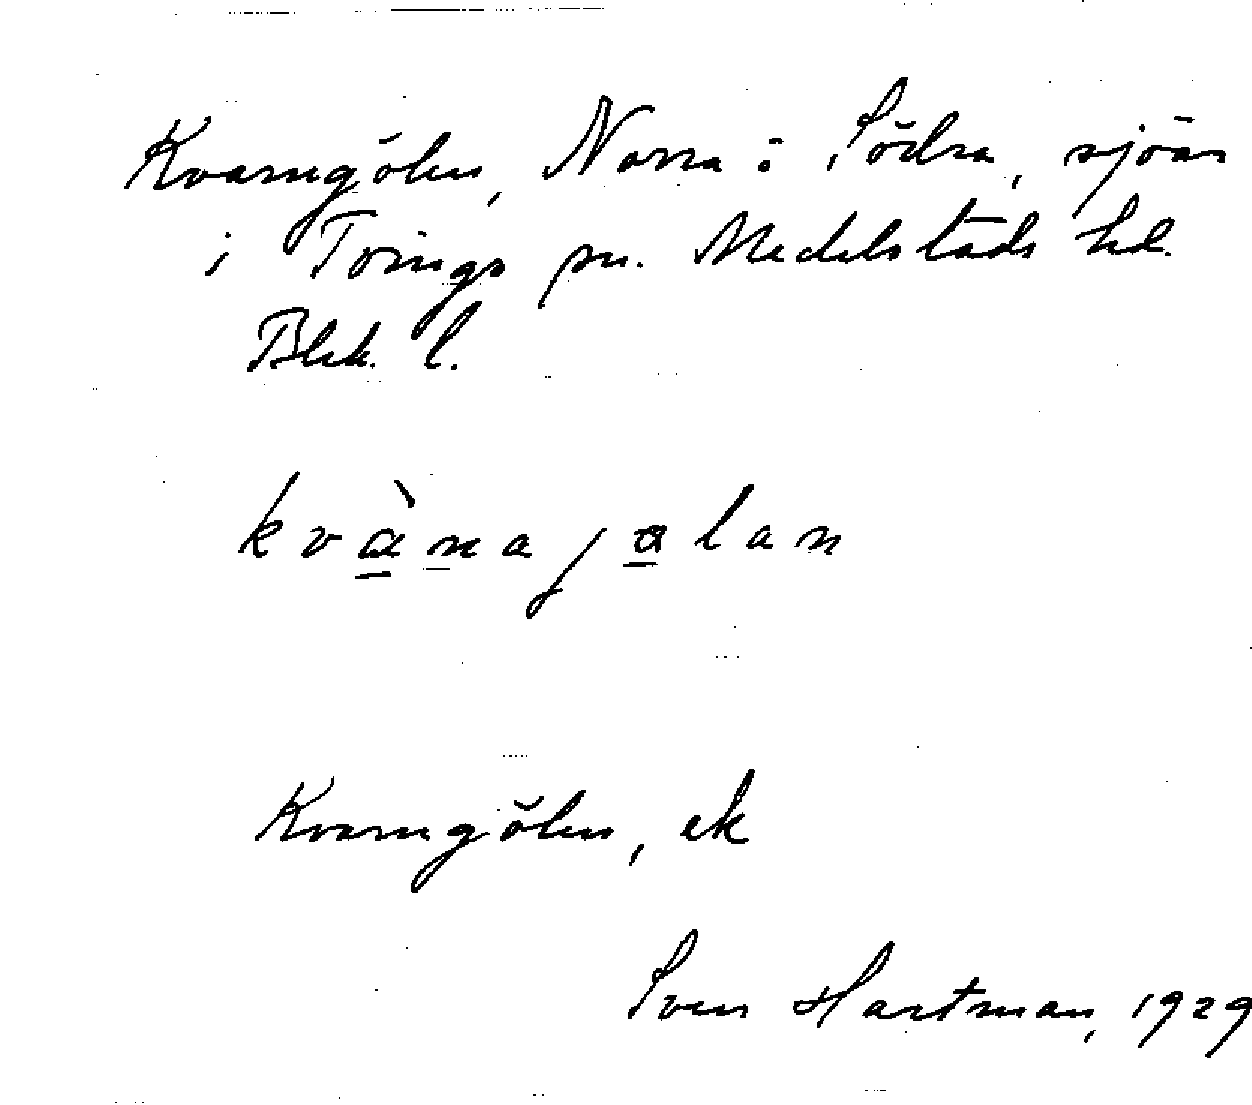 Kvarngölen, Norra o. Södra, sjöar
i Tvings sn. Medelstads hd.
Blek. l.
kvànajolan
Kvarngölen, ek
Sven Hartman, 1929